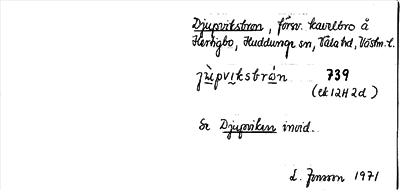 Djupviksbron, försv. kavelbro å
Härligbo, Huddunge sn, Våla hd, Västm. l.
jùpviksbrón 739
(ek 12H2d)
Se Djupviken invid.
L. Jonsson 1971